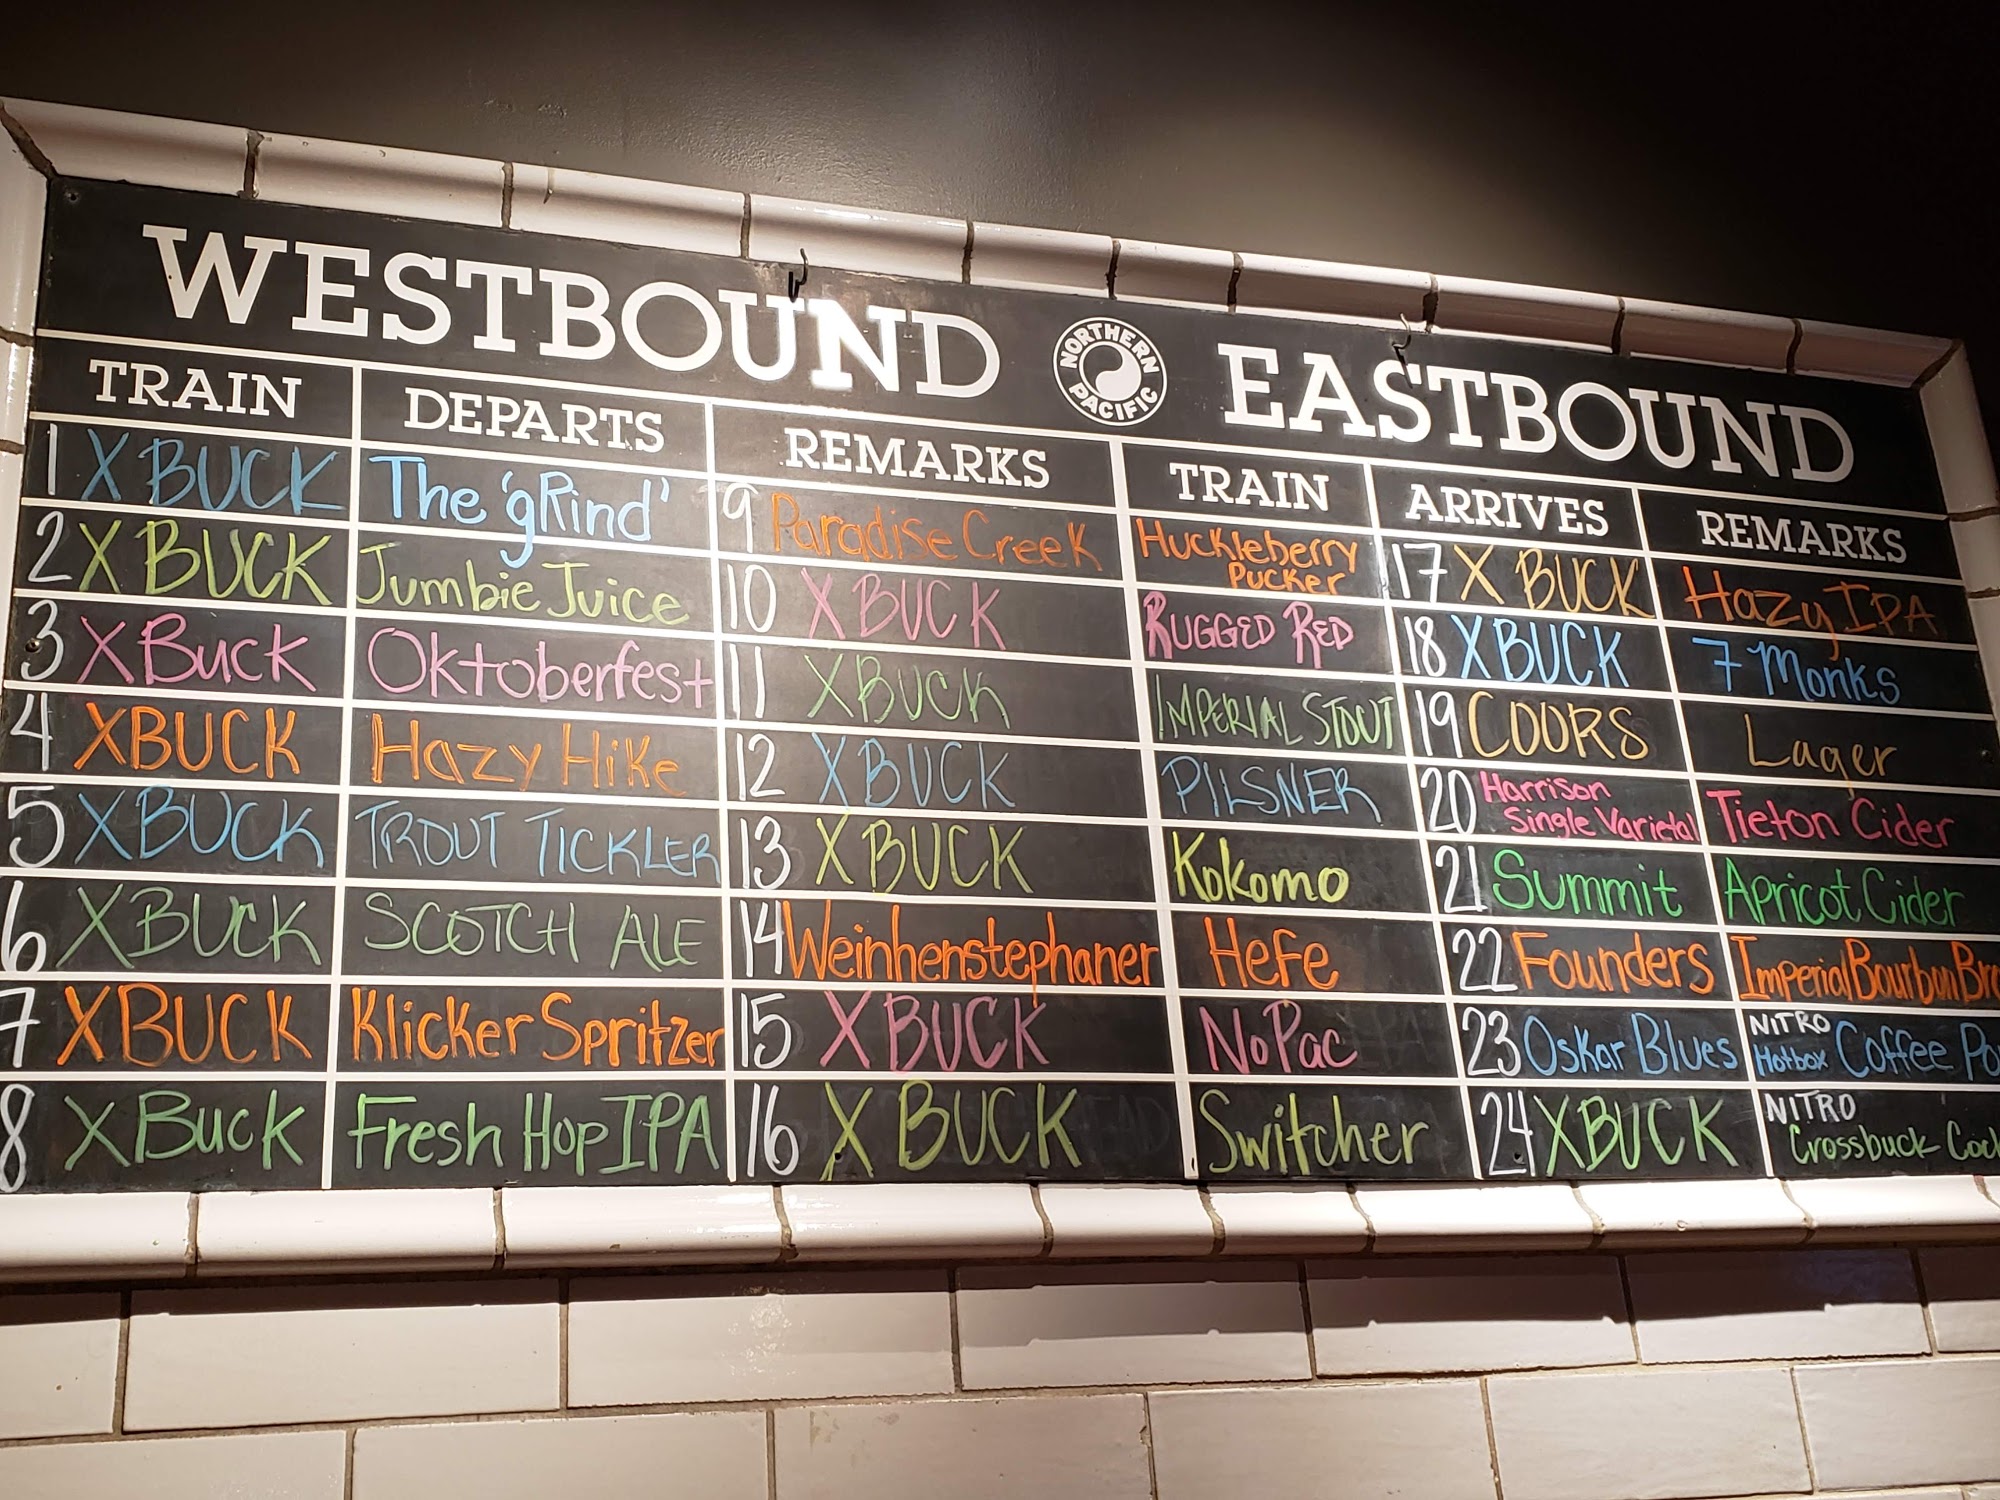 WESTBOUND
NORTHERN PACIFIC
EASTBOUND
TRAIN DEPARTS REMARKS TRAIN ARRIVES REMARKS
1 X BUCK The 'gRind'
2 X BUCK Jumbie Juice
3 X Buck Oktoberfest
4 XBUCK Hazy Hike
5 XBUCK TROUT TICKLER
6 XBUCK SCOTCH ALE
7 XBUCK Klicker Spritzer
8 XBuck Fresh Hop IPA
9 Paradise Creek Huckleberry
Pucker
10 X BUCK RUGGED RED
11 XBUCK IMPERIAL STOUT
12 XBUCK PILSNER
13 XBUCK Kokomo
14 Weinhenstephaner Hefe
15 XBUCK NoPac
16 X BUCK Switcher
17 X BUCK Hazy IPA
18 XBUCK 7 Monks
19 COORS Lager
20 Harrison
Single Varietal Tieton Cider
21 Summit Apricot Cider
22 Founders Imperial Bourbon Bro
23 Oskar Blues NITRO
Hotbox Coffee Po
24 XBUCK NITRO
Crossbuck Coc